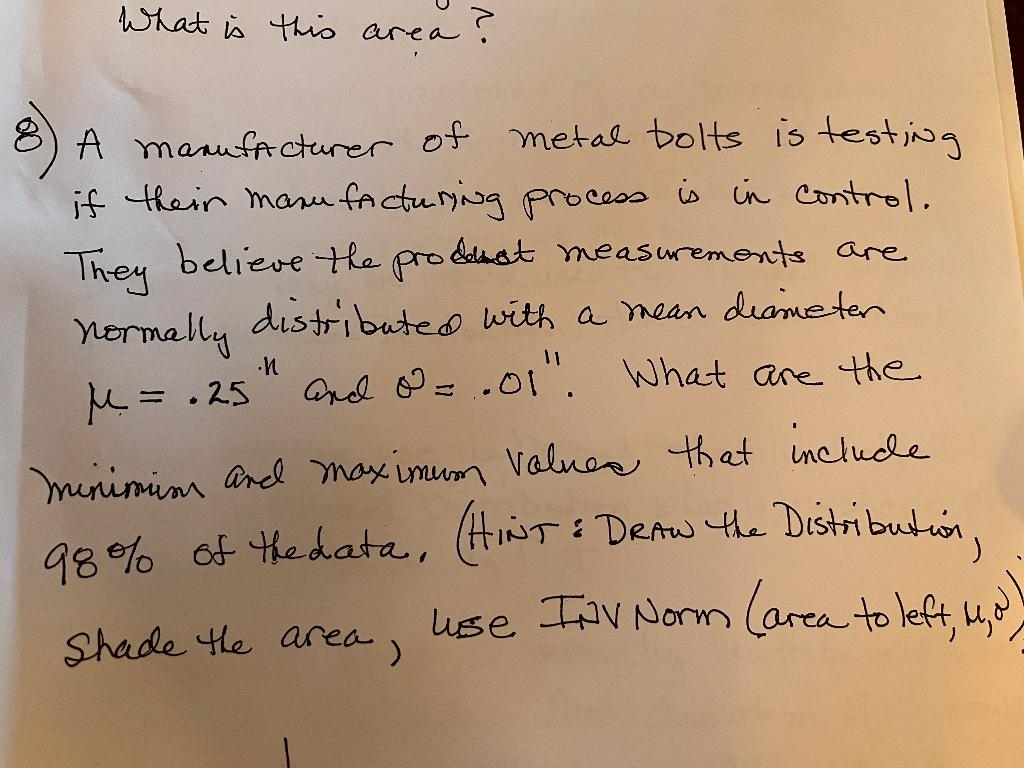 What is this area?
8) A manufacturer of metal bolts is testing
if their manufacturing process is in control.
They believe the product measurements are
normally distributed with a mean diameter
μ = .25" and σ = .01". What are the
minimum and maximum values that include
98% of the data. (HINT: DRAW the Distribution,
Shade the area, use INV Norm (area to left, μ, σ)